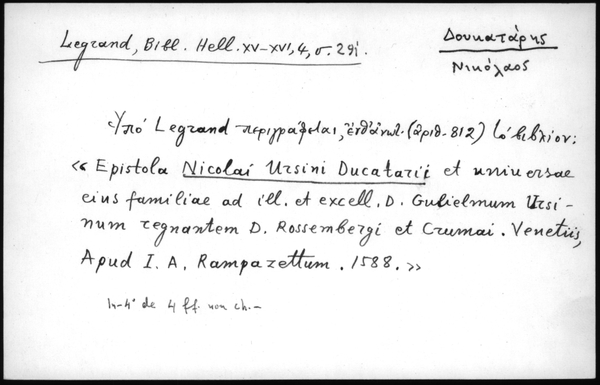 Legrand, Bibl. Hell. XV-XVI, 4, σ. 291.
Δουκατάρης
Νικόλαος
Ὑπό Legrand περιγράφεται, ἔνθ' ἀνωτ. (ἀριθ. 812) τό βιβλίον:
« Epistola Nicolai Ursini Ducatarii et universae
eius familiae ad ill. et excell. D. Gulielmum Ursi-
num regnantem D. Rossembergi et Crumai. Venetiis,
Apud I. A. Rampazettum. 1588. »
In-4° de 4 ff. non ch.-